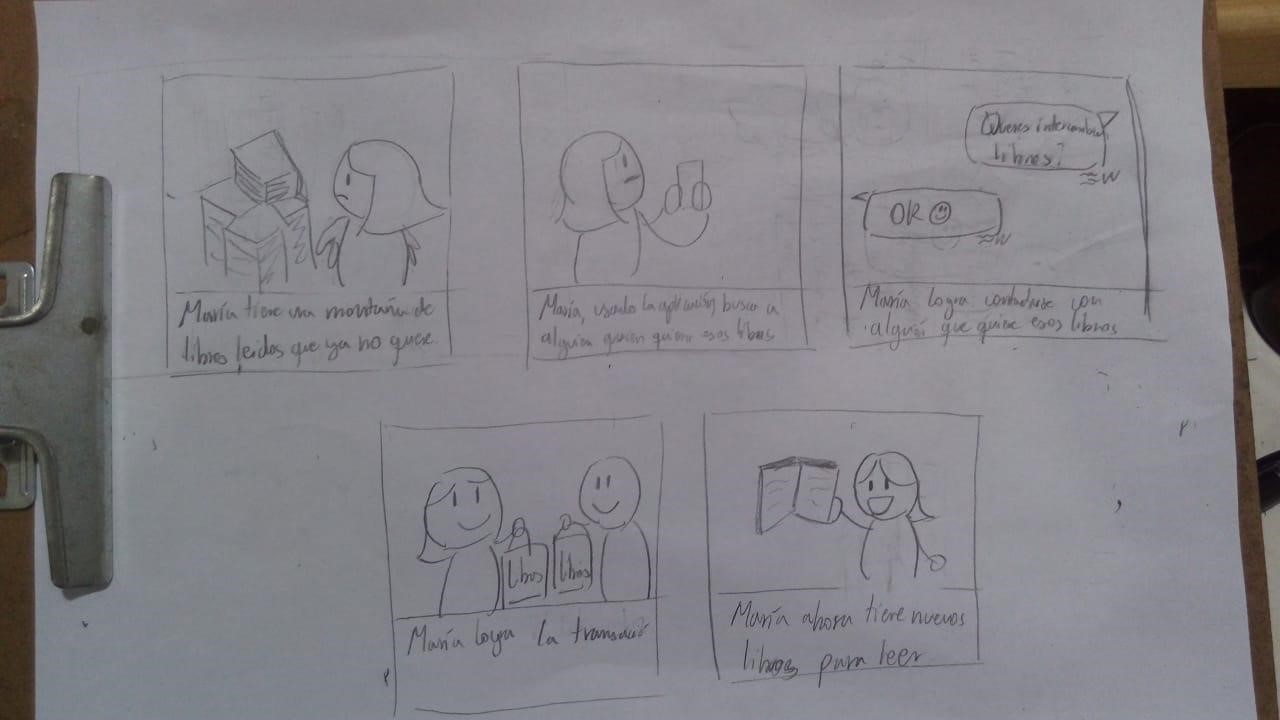 María tiene una montaña de
libros leídos que ya no quiere.
María, usando la aplicación busca a
alguien quien quiere esos libros
Quieres intercambiar
libros?
OK
María logra contactarse con
alguien que quiere esos libros
libros
libros
María logra la transacción
María ahora tiene nuevos
libros para leer